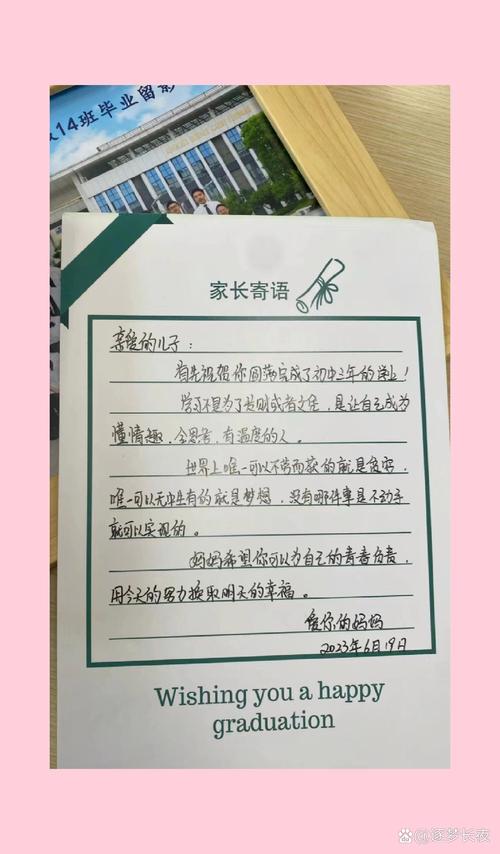 14班毕业留影
家长寄语
亲爱的儿子：
首先祝贺你圆满完成了初中三年的学业！
学习不是为了规则或者文凭，是让自己成为
懂情趣，会思考，有温度的人。
世界上唯一可以不劳而获的就是贫穷，
唯一可以无中生有的就是梦想，没有哪件事是不动手
就可以实现的。
妈妈希望你可以为自己的青春负责，
用今天的努力换取明天的幸福。
爱你的妈妈
2023年6月19日
Wishing you a happy
graduation
逐梦长夜